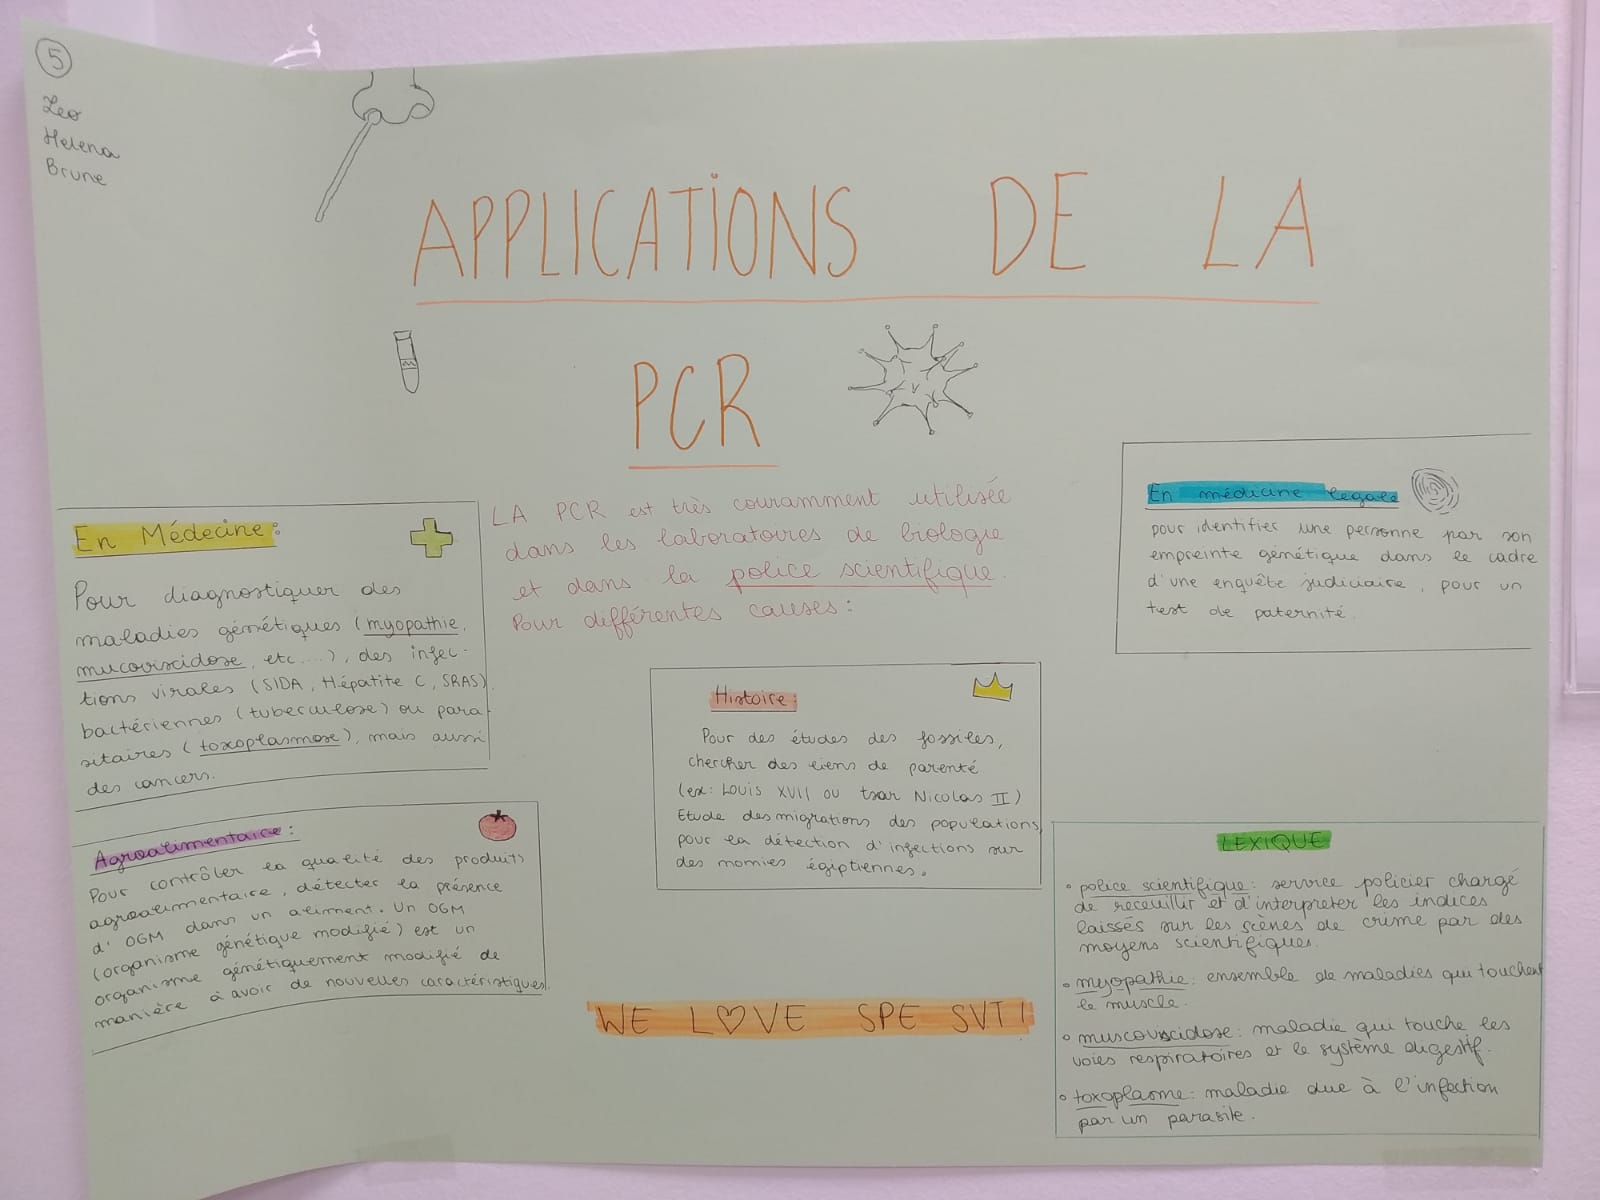 5
Leo
Helena
Brune
APPLICATIONS DE LA
PCR
LA PCR est très couramment utilisée
dans les laboratoires de biologie
et dans la police scientifique.
Pour différentes causes :
En Médecine :
Pour diagnostiquer des
maladies génétiques (myopathie,
mucoviscidose, etc....), des infec-
tions virales (SIDA, Hépatite C, SRAS),
bactériennes (tuberculose) ou para-
sitaires (toxoplasmose), mais aussi
des cancers.
Agroalimentaire :
Pour contrôler la qualité des produits
agroalimentaire, détecter la présence
d'OGM dans un aliment. Un OGM
(organisme génétique modifié) est un
organisme génétiquement modifié de
manière à avoir de nouvelles caractéristiques.
Histoire :
Pour des études des fossiles,
chercher des liens de parenté
(ex: Louis XVII ou tsar Nicolas II)
Etude des migrations des populations,
pour la détection d'infections sur
des momies égiptiennes.
WE L♡VE SPE SVT !
En médicine legale
pour identifier une personne par son
empreinte génétique dans le cadre
d'une enquête judiciaire, pour un
test de paternité.
LEXIQUE
• police scientifique : service policier chargé
de receuillir et d'interpreter les indices
laissés sur les scènes de crime par des
moyens scientifiques.
• myopathie : ensemble de maladies qui touchent
le muscle.
• muscoviscidose : maladie qui touche les
voies respiratoires et le système digestif.
• toxoplasme : maladie due à l'infection
par un parasite.